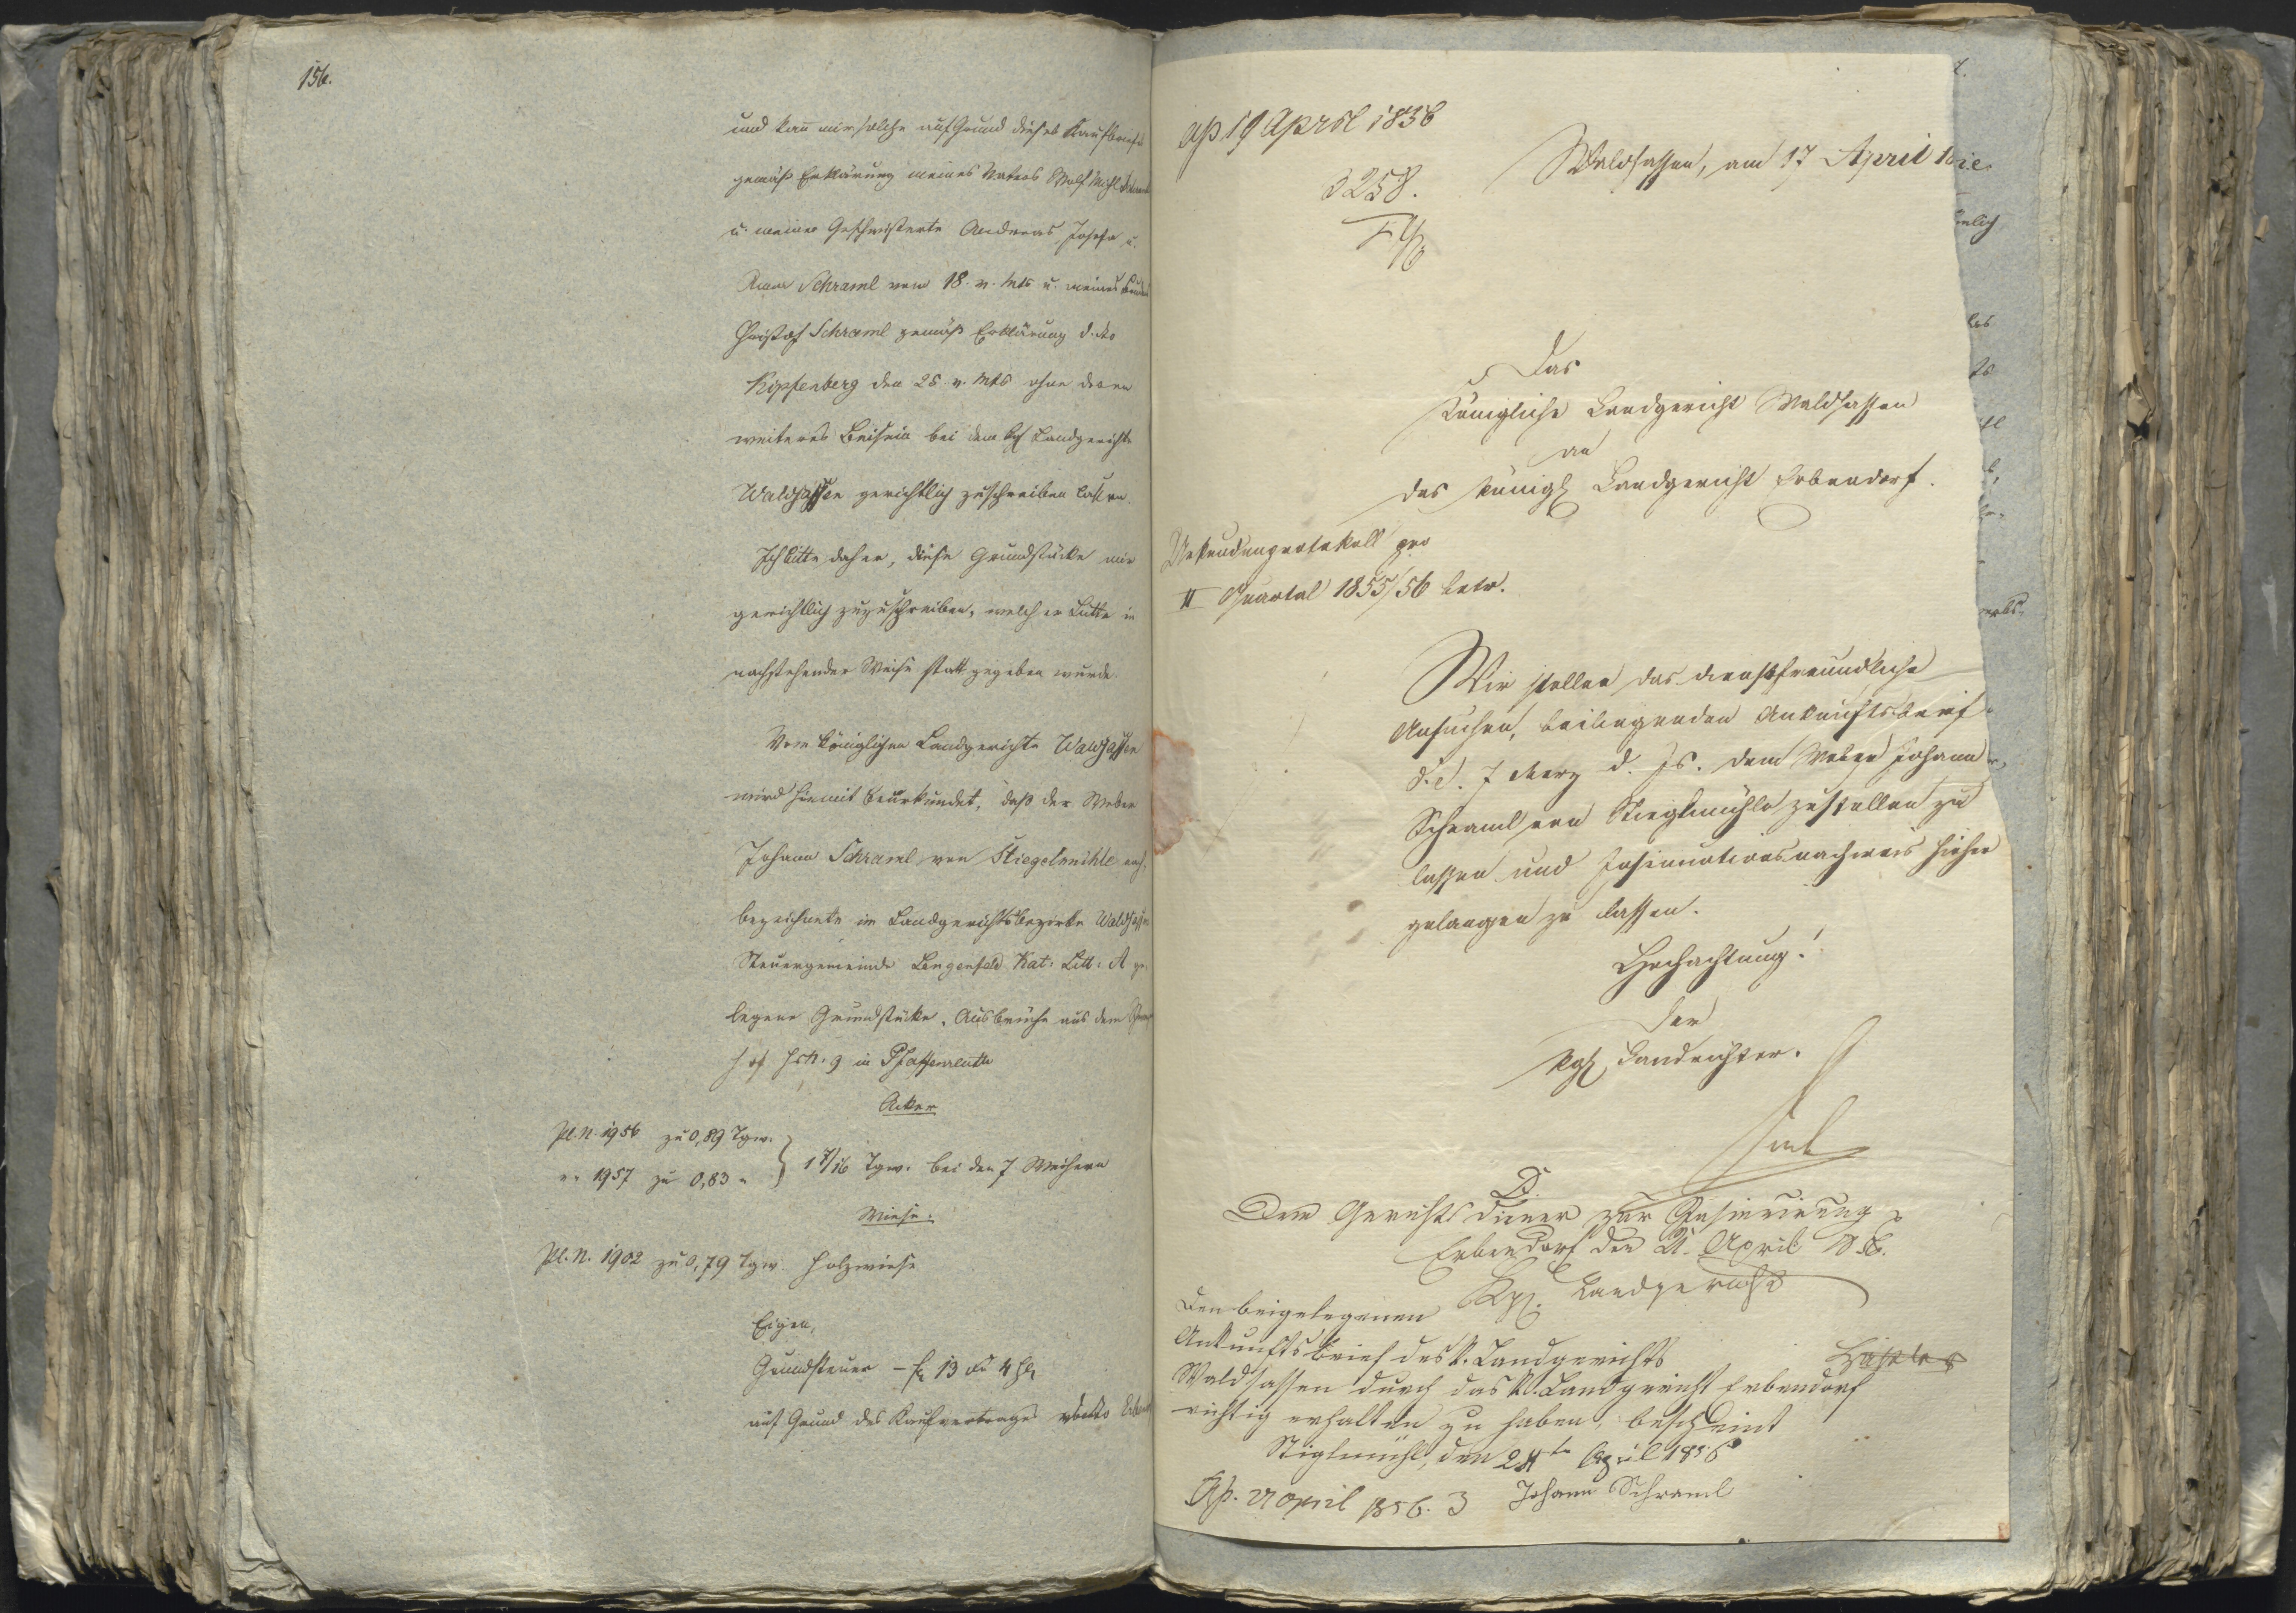 156.
und kann mir solche auf Grund dieses Kaufbriefs
gemäß Erklärung meines Vaters Wolf Michl Schraml
u. meiner Geschwisterte Andreas, Josefa u.
Anna Schraml vom 18. v. Mts u. meines Bruders
Christof Schraml gemäß Erklärung d. dto
Kipfenberg den 25. v. Mts ohne deren
weiteres Beisein bei dem kgl Landgerichte
Waldsassen gerichtlich zuschreiben lassen.
Ich bitte daher, diese Grundstücke mir
gerichtlich zuzuschreiben, welcher Bitte in
nachstehender Weise statt gegeben wurde.
Vom königlichen Landgerichte Waldsassen
wird hiemit beurkundet, daß der Weber
Johann Schraml von Stiegelmühle nach
bezeichnete im Landgerichtsbezirke Waldsassen
Steuergemeinde Lengenfeld Kat: Litt: A ge
legene Grundstücke, Ausbrüche aus dem
hof Hs N. 9 in Pfaffenreuth
Acker
Pl. N. 1956 zu 0,89 Tgw.
" " 1957 zu 0,83 " } 1 7/16 Tgw. bei den 7 Weihern
Wiese.
Pl. N. 1902 zu 0,79 Tgw Holzwiese
Eigen,
Grundsteuer – fl 13 xr 4 hl
auf Grund des Kaufvertrages
ap 19 April 1856
3258.
Waldsassen, am 17 April
Das
Königliche Landgericht Waldsassen
an
das königl Landgericht Erbendorf.
Urkundenprotokoll pro
II Quartal 1855/56 betr.
Wir stellen das dienstfreundliche
Ansuchen, beiliegenden Ankunftsbrief
d. d. 7 März d. Js. dem Weber Johann
Schraml von Stieglmühle zustellen zu
lassen und Insinuationsnachweis hieher
gelangen zu lassen.
Hochachtung!
Der
kgl Landrichter.
D.
Dem Gerichtsdiener zur Insinuirung
Erbendorf den 21. April 1856.
Kgl. Landgericht
Den beigelegenen
Ankunftsbrief des k. Landgerichts
Waldsassen durch das k. Landgericht Erbendorf
richtig erhalten zu haben, bescheint
Stiglmühl, den 24te April 1856
Johann Schraml
Ap. 27 April 1856. 3